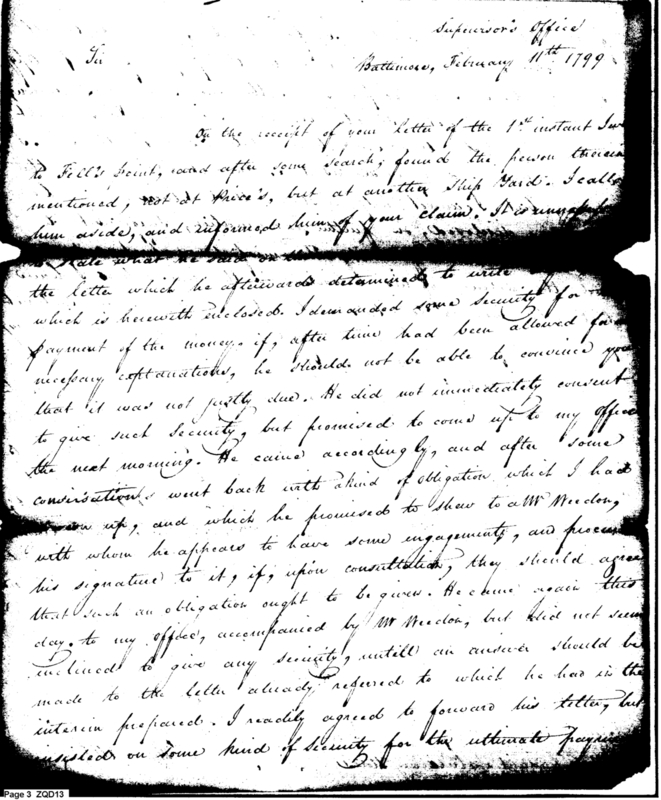 Supervisor's Office
Sir
Baltimore, February 11th 1799
On the receipt of your letter of the 1st instant I
to Fell's Point, and after some search, found the person therein
mentioned, not at Price's, but at another Ship Yard. I
him aside, and informed him of your claim. It is
to state what he said on
the letter which he afterwards determined to write
which is herewith enclosed. I demanded some security for
payment of the money, if, after time had been allowed for
necessary explanations, he should not be able to convince you
that it was not justly due. He did not immediately consent
to give such Security, but promised to come up to my office
the next morning. He came accordingly, and after some
conversation, went back with a kind of obligation which I had
up, and which he promised to shew to a Mr Weedon,
with whom he appears to have some engagements, and procure
his signature to it, if, upon consultation, they should agree
that such an obligation ought to be given. He came again this
day, to my office, accompanied by Mr Weedon, but did not seem
inclined to give any security, untill an answer should be
made to the letter already referred to which he had in the
interim prepared. I readily agreed to forward his letter, but
insisted on some kind of Security for the ultimate
Page 3 ZQD13